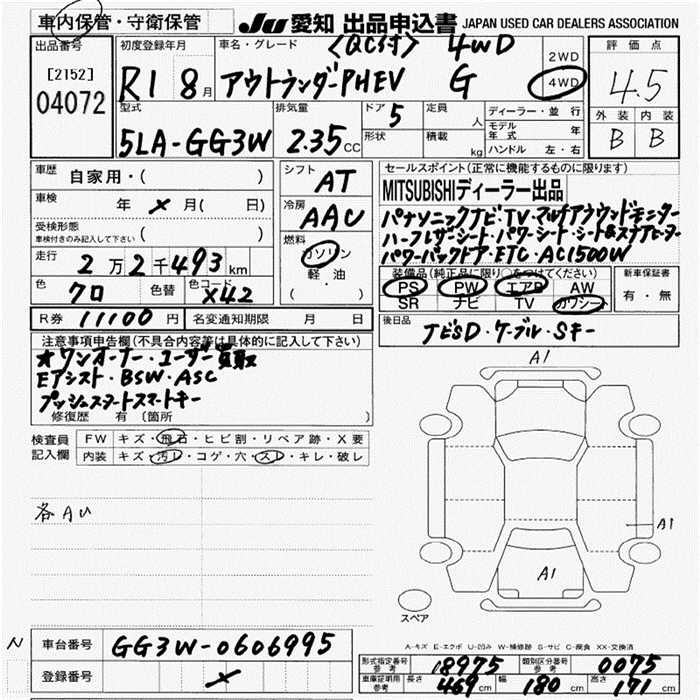 車内保管・守衛保管
JU 愛知 出品申込書 JAPAN USED CAR DEALERS ASSOCIATION
出品番号
[2152]
04072
初度登録年月
R1 8月
車名・グレード 〈QC付〉 4WD
アウトランダーPHEV G
2WD
4WD
評価点
4.5
外装 内装
B B
型式
5LA-GG3W
排気量
2.35 CC
ドア 5
定員 人
形状
積載 kg
ディーラー・並行
モデル年式 年
ハンドル 左・右
車歴 自家用・( )
車検 年 × 月( 日)
受検形態
車検付きのみ記入して下さい ( )
走行 2万2千493km
色 クロ
色替
色コード X42
シフト AT
冷房 AAC
燃料
ガソリン
軽・油
( )
セールスポイント(正常に機能するものに限ります)
MITSUBISHIディーラー出品
パナソニックナビ・TV・マルチアラウンドモニター
ハーフレザーシート・パワーシート・シート&ステアヒーター
パワーバックドア・ETC・AC1500W
装備品(純正品に限り○をつけてください)
PS PW エアB AW
SR ナビ TV カワシート
新車保証書
有・無
R券 11100円
名変通知期限 月 日
後日品 ナビSD・ケーブル・Sキー
注意事項申告欄(不具合内容等は具体的に記入して下さい)
★ワンオーナー・ユーザー買取
Eアシスト・BSW・ASC
プッシュスタートスマートキー
修復歴 有 〔箇所 〕
検査員記入欄
FW キズ・飛石・ヒビ割・リペア跡・X要
内装 キズ・汚レ・コゲ・穴・スレ・キレ・破レ
各AU
A1
A1
A1
スペア
A-キズ E-エクボ U-凹み W-補修跡 S-サビ C-腐食 XX-交換済
N 車台番号 GG3W-0606995
登録番号 ×
形式指定番号 参考 18975 類別区分番号 参考 0075
車庫証明用 参考 長さ 469cm 幅 180cm 高さ 171cm